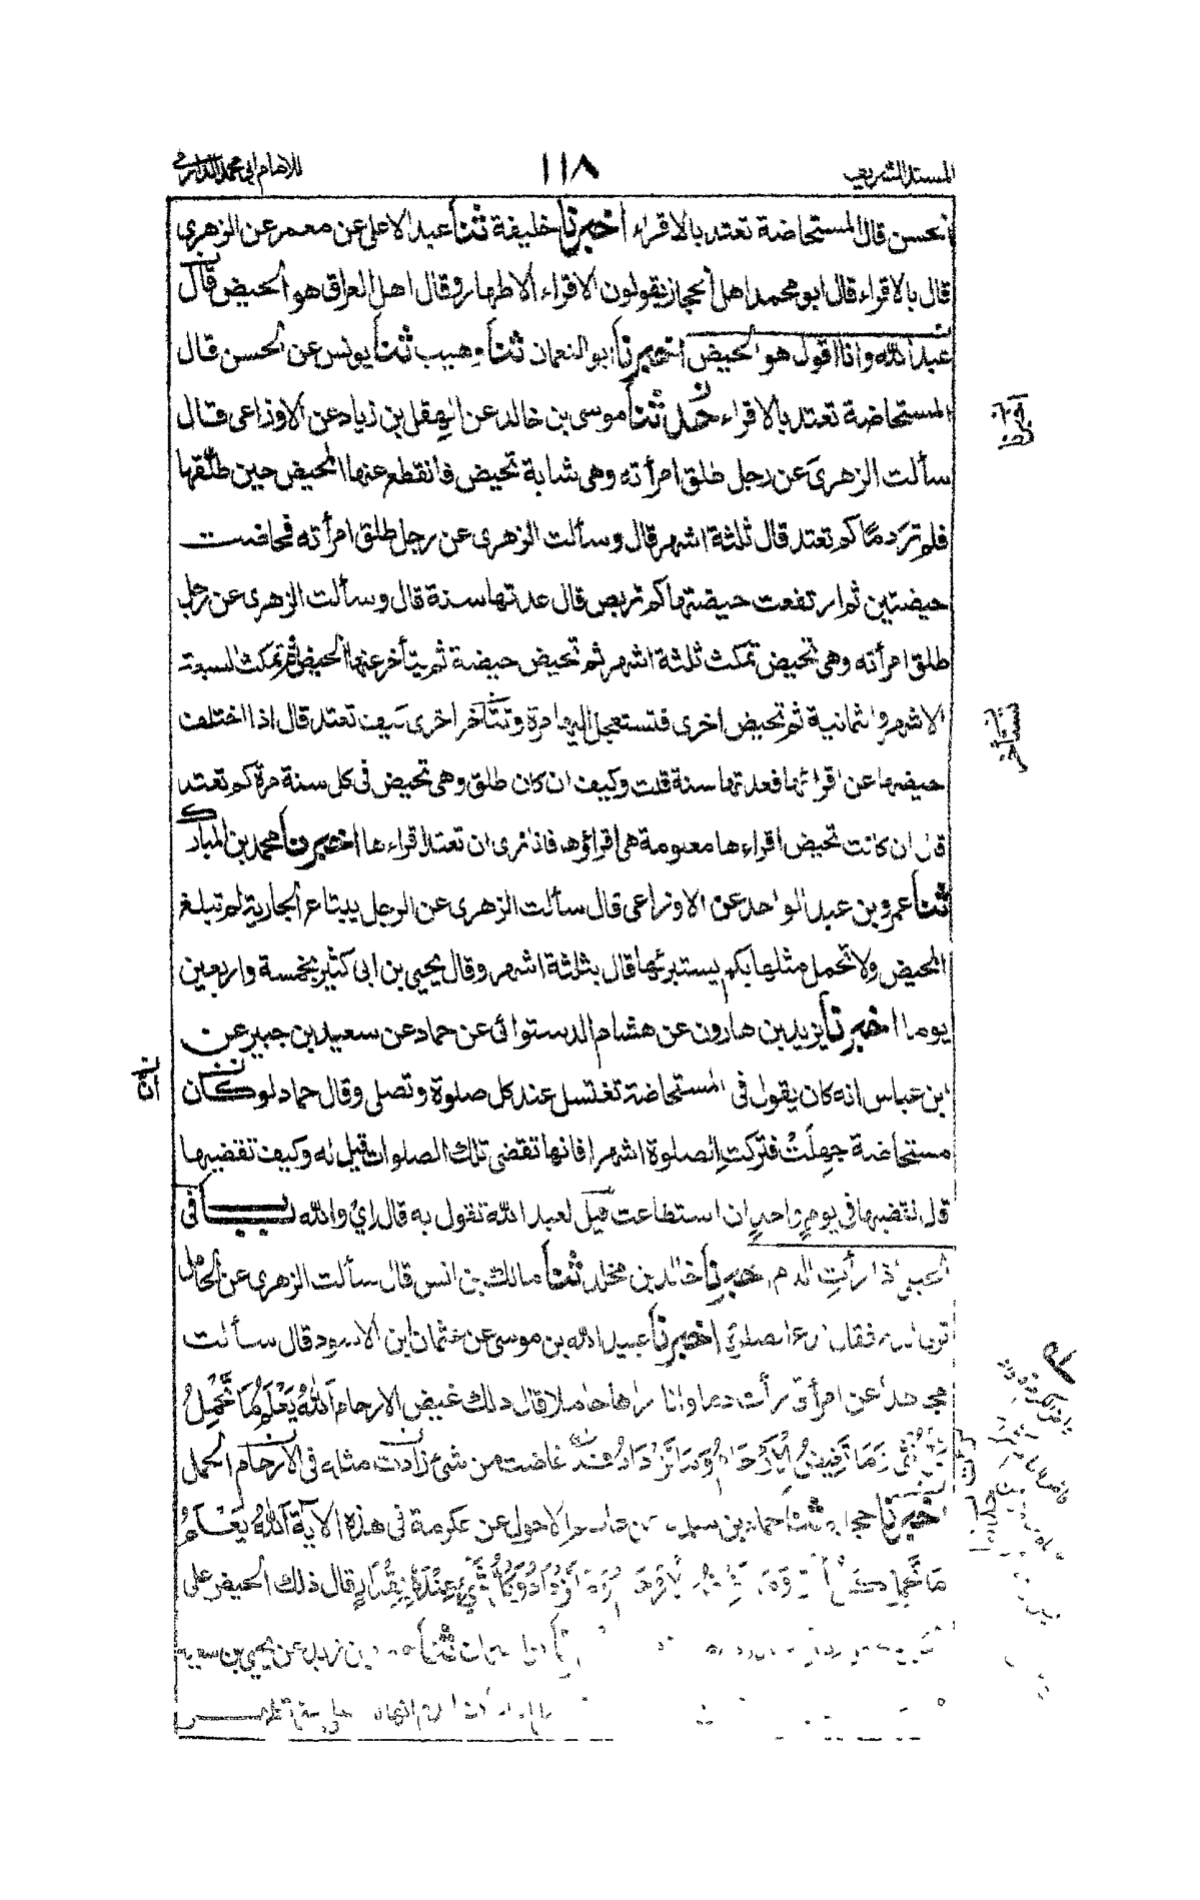 المسند الشريف ١١٨ للامام ابى محمد الدارمى
الحسن قال المستحاضة تعتد بالاقراء اخبرنا خليفة ثنا عبد الاعلى عن معمر عن الزهرى
قال بالاقراء قال ابو محمد اهل الحجاز يقولون الاقراء الاطهار وقال اهل العراق هو الحيض قال
عبد الله وانا اقول هو الحيض اخبرنا ابو النعمان ثنا وهيب ثنا يونس عن الحسن قال
المستحاضة تعتد بالاقراء حدثنا موسى بن خالد عن الهقل بن زياد عن الاوزاعى قال
سألت الزهرى عن رجل طلق امرأته وهى شابة تحيض فانقطع عنها المحيض حين طلقها
فلم تر دما كم تعتد قال ثلثة اشهر قال وسألت الزهرى عن رجل طلق امرأته فحاضت
حيضتين ثم ارتفعت حيضتها كم تربص قال عدتها سنة قال وسألت الزهرى عن رجل
طلق امرأته وهى تحيض تمكث ثلثة اشهر ثم تحيض حيضة ثم يتأخر عنها الحيض ثم تمكث السبعة
الاشهر والثمانية ثم تحيض اخرى فتستعجل اليها مرة وتتأخر اخرى كيف تعتد قال اذا اختلفت
حيضها عن اقرائها فعدتها سنة قلت وكيف ان كان طلق وهى تحيض فى كل سنة مرة كم تعتد
قال ان كانت تحيض اقراءها معلومة هى اقراؤها فاذا نرى ان تعتد اقراءها اخبرنا محمد بن المبارك
ثنا عمرو بن عبد الواحد عن الاوزاعى قال سألت الزهرى عن الرجل يبتاع الجارية لم تبلغ
المحيض ولا تحمل مثلها بكم يستبرئها قال بثلثة اشهر وقال يحيى بن ابى كثير بخمسة واربعين
يوما اخبرنا يزيد بن هارون عن هشام الدستوائى عن حماد عن سعيد بن جبير عن
ابن عباس انه كان يقول فى المستحاضة تغتسل عند كل صلوة وتصلى وقال حماد لو كان
مستحاضة جهلت فتركت الصلوة اشهرا فانها تقضى تلك الصلوات قيل له وكيف تقضيها
قال تقضيها فى يوم واحد ان استطاعت قيل لعبد الله تقول به قال اي والله باب فى
الحبلى اذا رأت الدم اخبرنا خالد بن مخلد ثنا مالك بن انس قال سألت الزهرى عن الحامل
ترى الدم فقال تدع الصلوة اخبرنا عبيد الله بن موسى عن عثمان ابن الاسود قال سألت
مجاهدا عن امرأتى رأت دما وانا اراها حاملا قال ذلك غيض الارحام الله يعلم ما تحمل
كل انثى وما تغيض الارحام وما تزداد فما غاضت من شئ زادت مثله فى الارحام الحمل
اخبرنا حجاج ثنا حماد بن سلمة عن عاصم الاحول عن عكرمة فى هذه الآية الله يعلم
ما تحمل كل انثى وما تغيض الارحام وما تزداد وكل شئ عنده بمقدار قال ذلك الحيض على
ثنا بن زيد عن يحيى بن سعيد